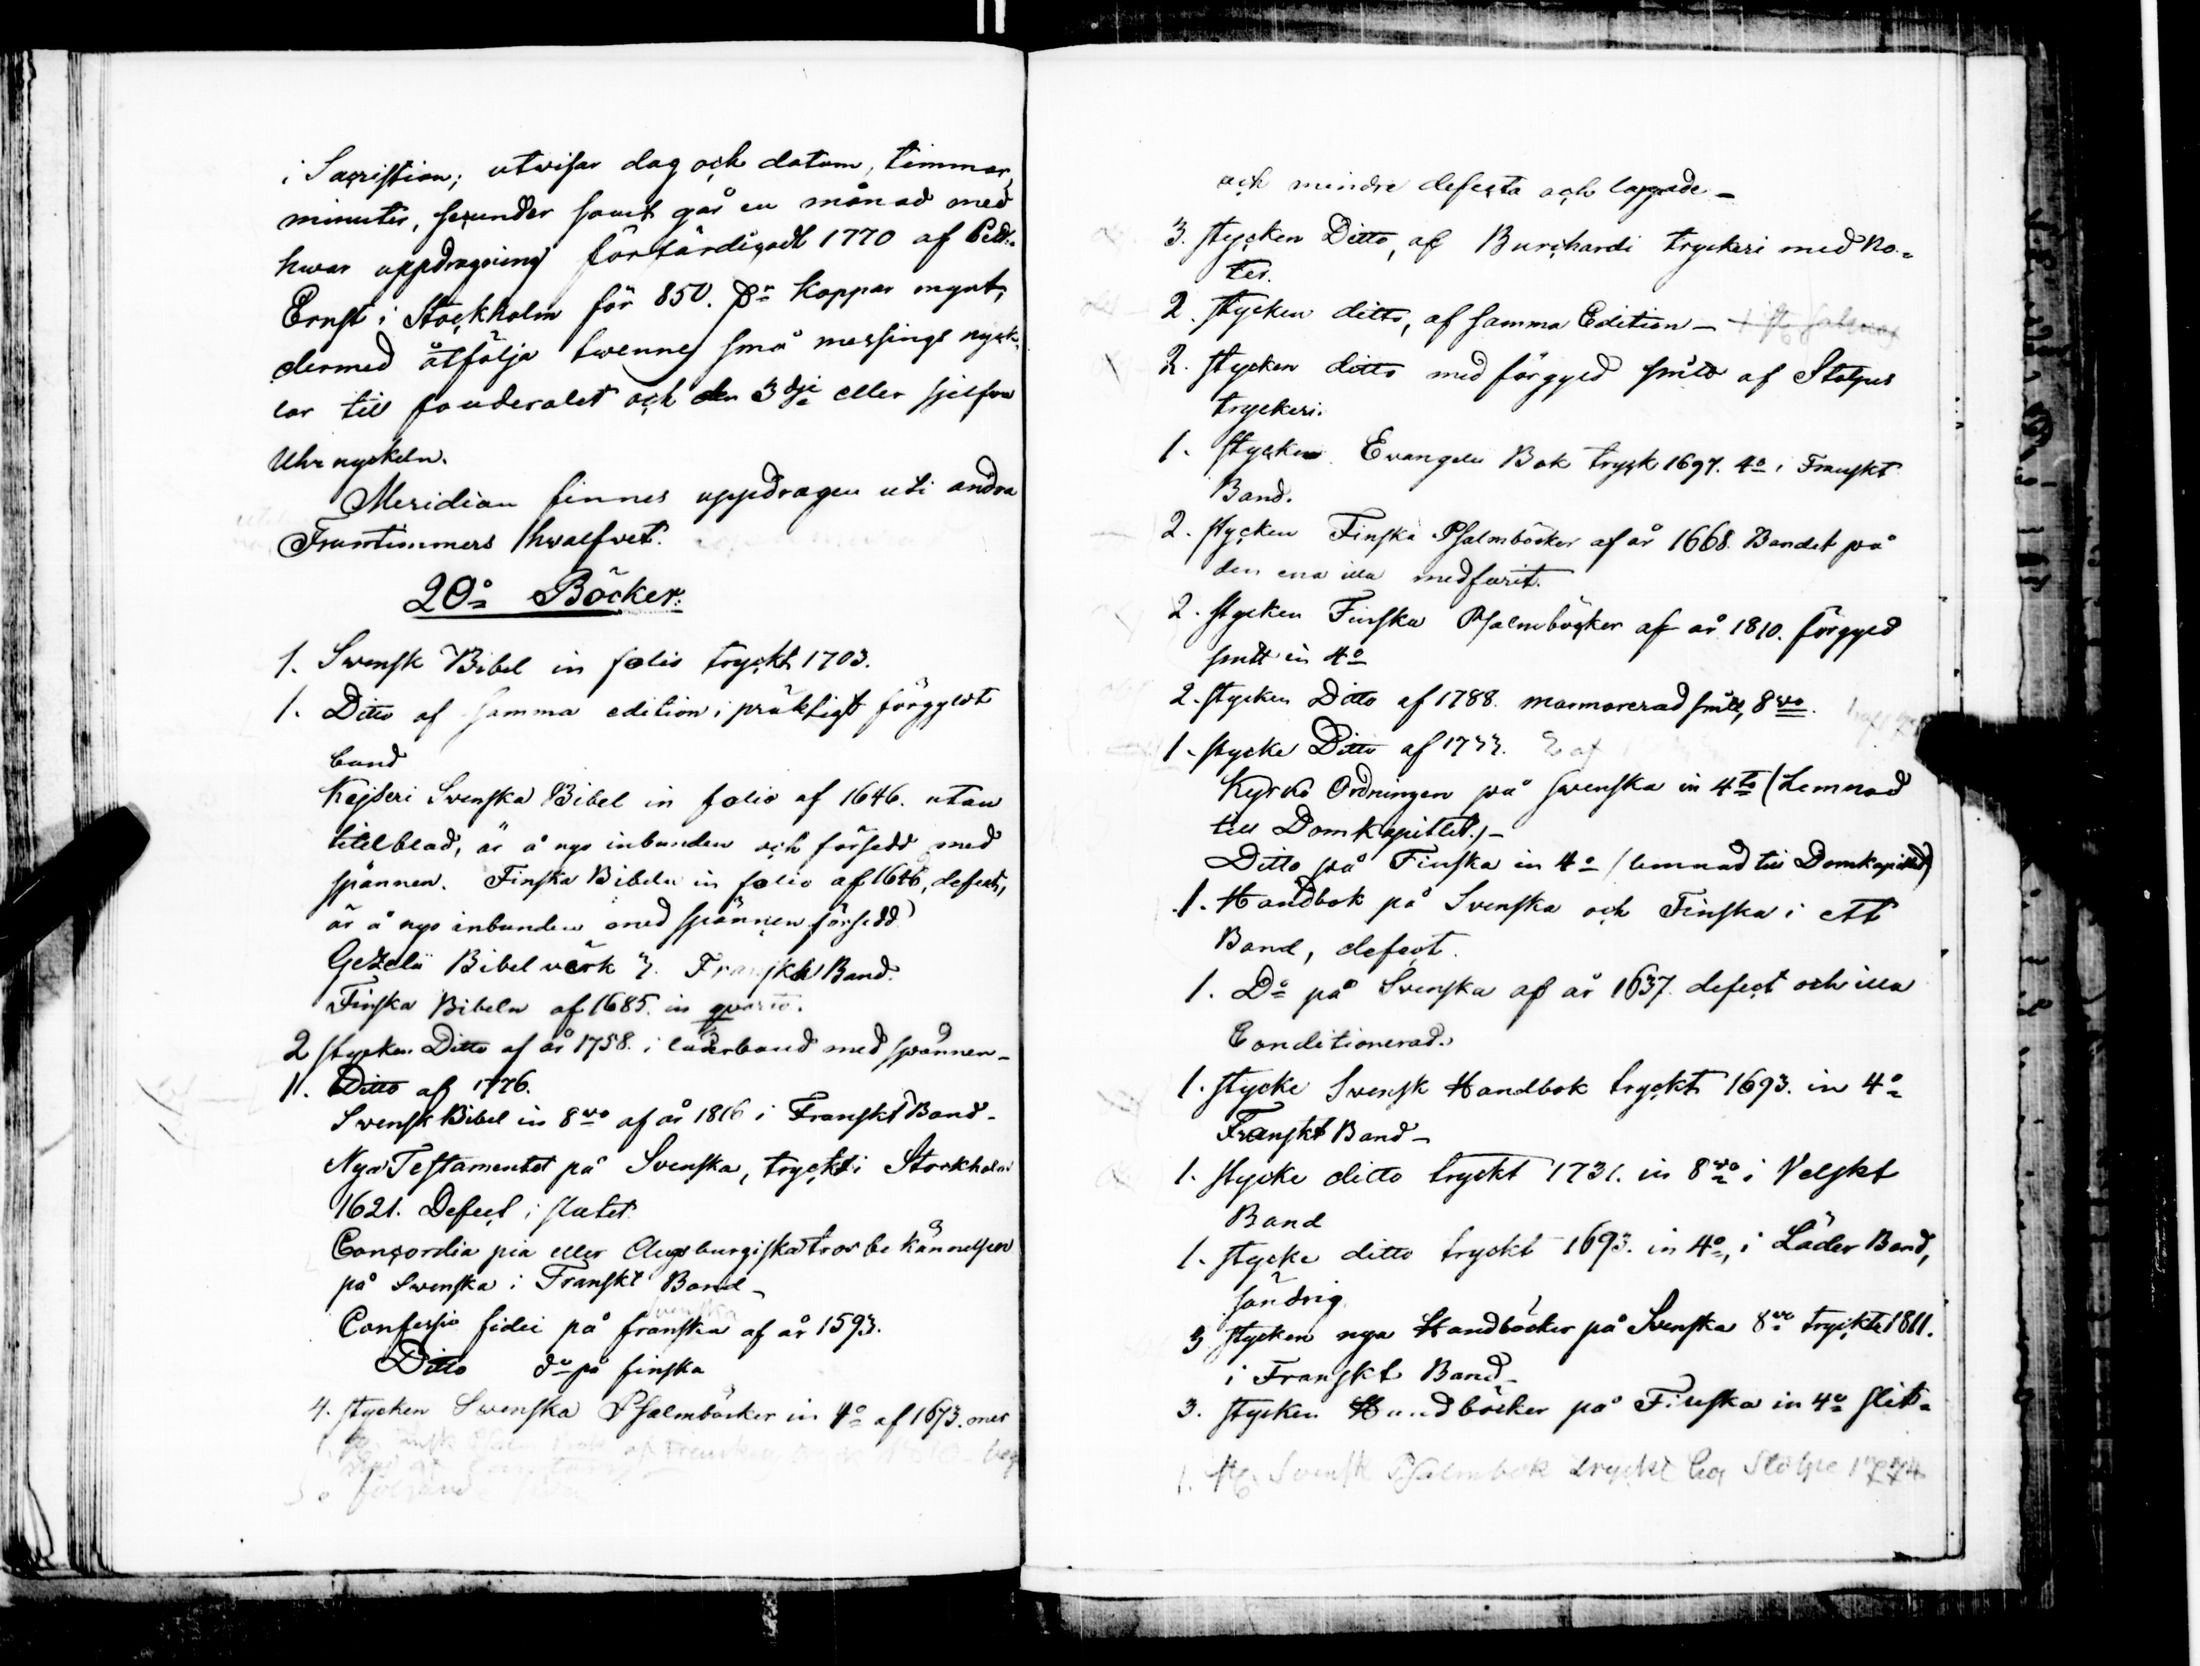 i Sacristian; utvisar dag och datum, timmar,
minuter, secunder samt går en månad med
hwar uppdragning förfärdigadt 1770 af Pett:
Ernst i Stockholm för 850. Dr Koppar mynt,
dermed åtfölja twenne små messings nyck-
lar till fouderalet och den 3dje eller sjelfva
Uhr nyckeln.
Meridian finnes uppdragen uti andra
Fruntimmers hwalfvet.
20o Böcker:
1. Swensk Bibel in folio tryckt 1703.
1. Ditto af samma edition i präktigt förgyldt
band
Kejseri Svenska Bibel in folio af 1646. utan
titelblad, är å nyo inbunden och försedd med
spännen. Finska Bibeln in folio af 1646, defect,
är å nyo inbunden med spännen försedd
Gezelii Bibel värk 3. Franskt Band.
Finska Bibeln af 1685. in qvarto.
2 stycken Ditto af år 1758. i läderband med spännen-
11. Ditto af 1776.
Swensk Bibel in 8vo af år 1816 i Franskt Band-
Nya Testamentet på Svenska, tryckt i Stockholm
1621. Defect i slutet
Concordia pia eller Augsburgiska trosbekännelsen
på Swenska i Franskt Band-
Svenska
Confessio fidei på franska af år 1593.
Ditto do på finska
4. stycken Swenska Psalmböcker in 4o af 1693. mer
följande
och mindre defecta och lappade-
3. stycken Ditto, af Burchardi tryckeri med No-
ter.
2. stycken ditto, af samma Edition-
2. stycken ditto med förgyld snitt af Stolpes
tryckeri.
1. stycken Evangelii Bok tryck 1697. 4o i Franskt
Band.
2. stycken Finska Psalmböcker af år 1668. Bandet på
den ena illa medfarit.
2. stycken Finska Psalmböcker af år 1810. förgyld
snitt in 4o
2. stycken Ditto af 1788. marmorerad snitt, 8vo.
1. stycke Ditto af 1733.
Kyrko Ordningen på Swenska in 4to (Lemnad
till Domkapitlet.)-
Ditto på Finska in 4o (lemnad till Domkapitlet)
1. Handbok på Svenska och Finska i ett
Band, defect.
1. Do på Svenska af år 1637. defect och illa
Conditionerad.
1. stycke Swensk Handbok tryckt 1693. in 4o
Franskt Band-
1. stycke ditto tryckt 1731. in 8vo i Velskt
Band
1. stycke ditto tryckt 1693. in 4o, i Läder Band,
söndrig
3 stycken nya Handböcker på Svenska 8vo tryckte 1811.
i Franskt Band-
3. stycken Handböcker på Finska in 4o slit-
1. st. Svensk Psalmbok tryckt hos Stolpe 1774